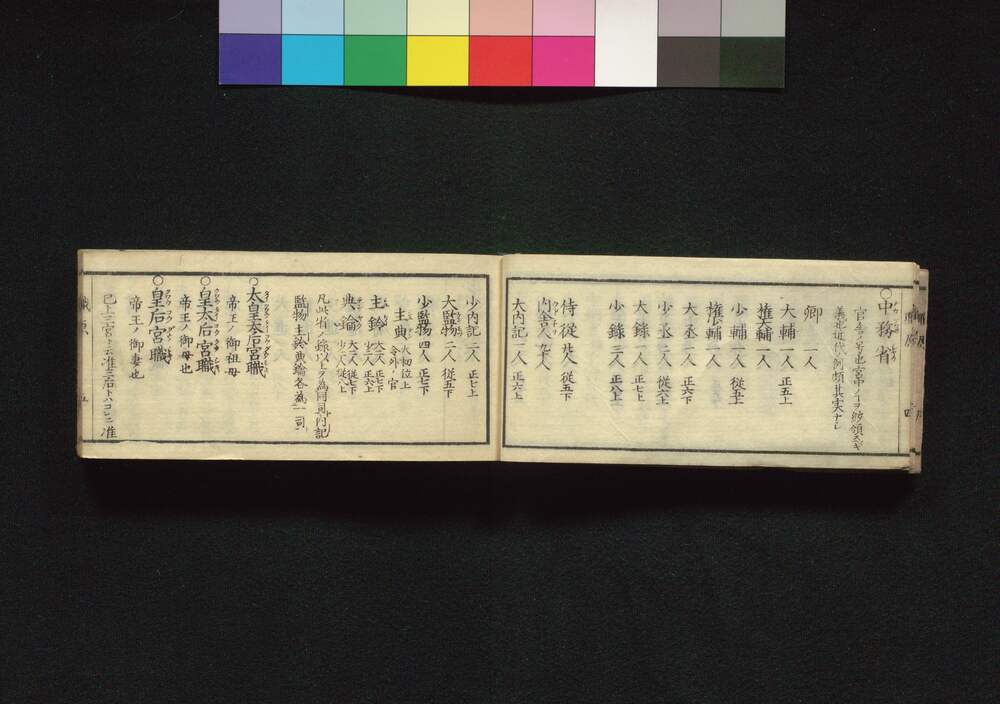 ○中務省
卿 一人
大輔 一人 正五上
権大輔 一人
少輔 一人 従五上
権少輔 一人
大丞 一人 正六下
少丞 二人 従六上
大録 一人 正七上
少録 三人 正八上
侍従 八人 従五下
内舎人 九十人
大内記 二人 正六上
少内記 二人 正七上
大監物 二人 従五下
少監物 四人 正七下
主典
主鈴 大二人 正七下 少二人 正八上
典鑰 大二人 従七下 少二人 従八上
凡此省ノ録以上ヲ為同司内記
監物主鈴典鑰各為一司
○太皇太后宮職
帝王ノ御祖母
○皇太后宮職
帝王ノ御母也
○皇后宮職
帝王ノ御妻也